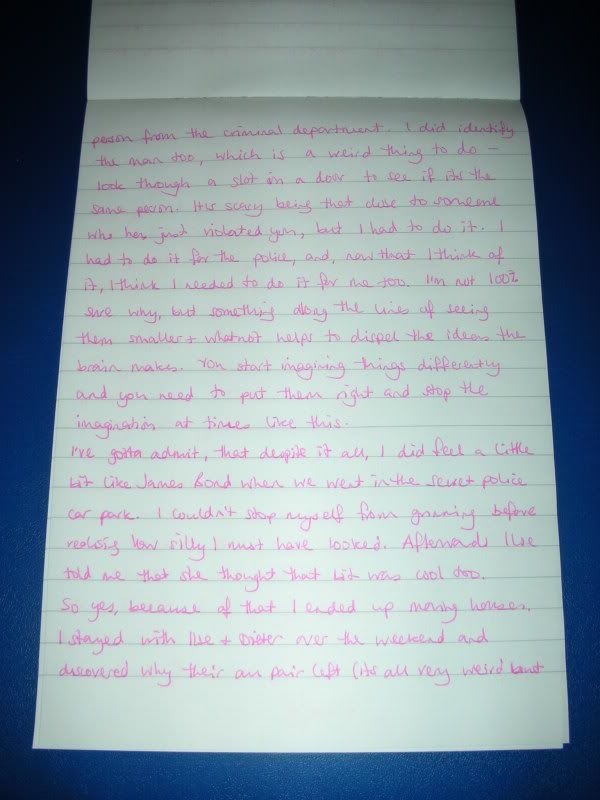 person from the criminal department. I did identify
the man too, which is a weird thing to do –
look through a slot in a door to see if its the
same person. It is scary being that close to someone
who has just violated you, but I had to do it. I
had to do it for the police, and, now that I think of
it, I think I needed to do it for me too. I'm not 100%
sure why, but something along the lines of seeing
them smaller + whatnot helps to dispel the ideas the
brain makes. You start imagining things differently
and you need to put them right and stop the
imagination at times like this.
I've gotta admit, that despite it all, I did feel a little
bit like James Bond when we went in the secret police
car park. I couldn't stop myself from grinning before
realising how silly I must have looked. Afterwards Ilse
told me that she thought that bit was cool too.
So yes, because of that I ended up moving houses.
I stayed with Ilse + Dieter over the weekend and
discovered why their au pair left (its all very weird